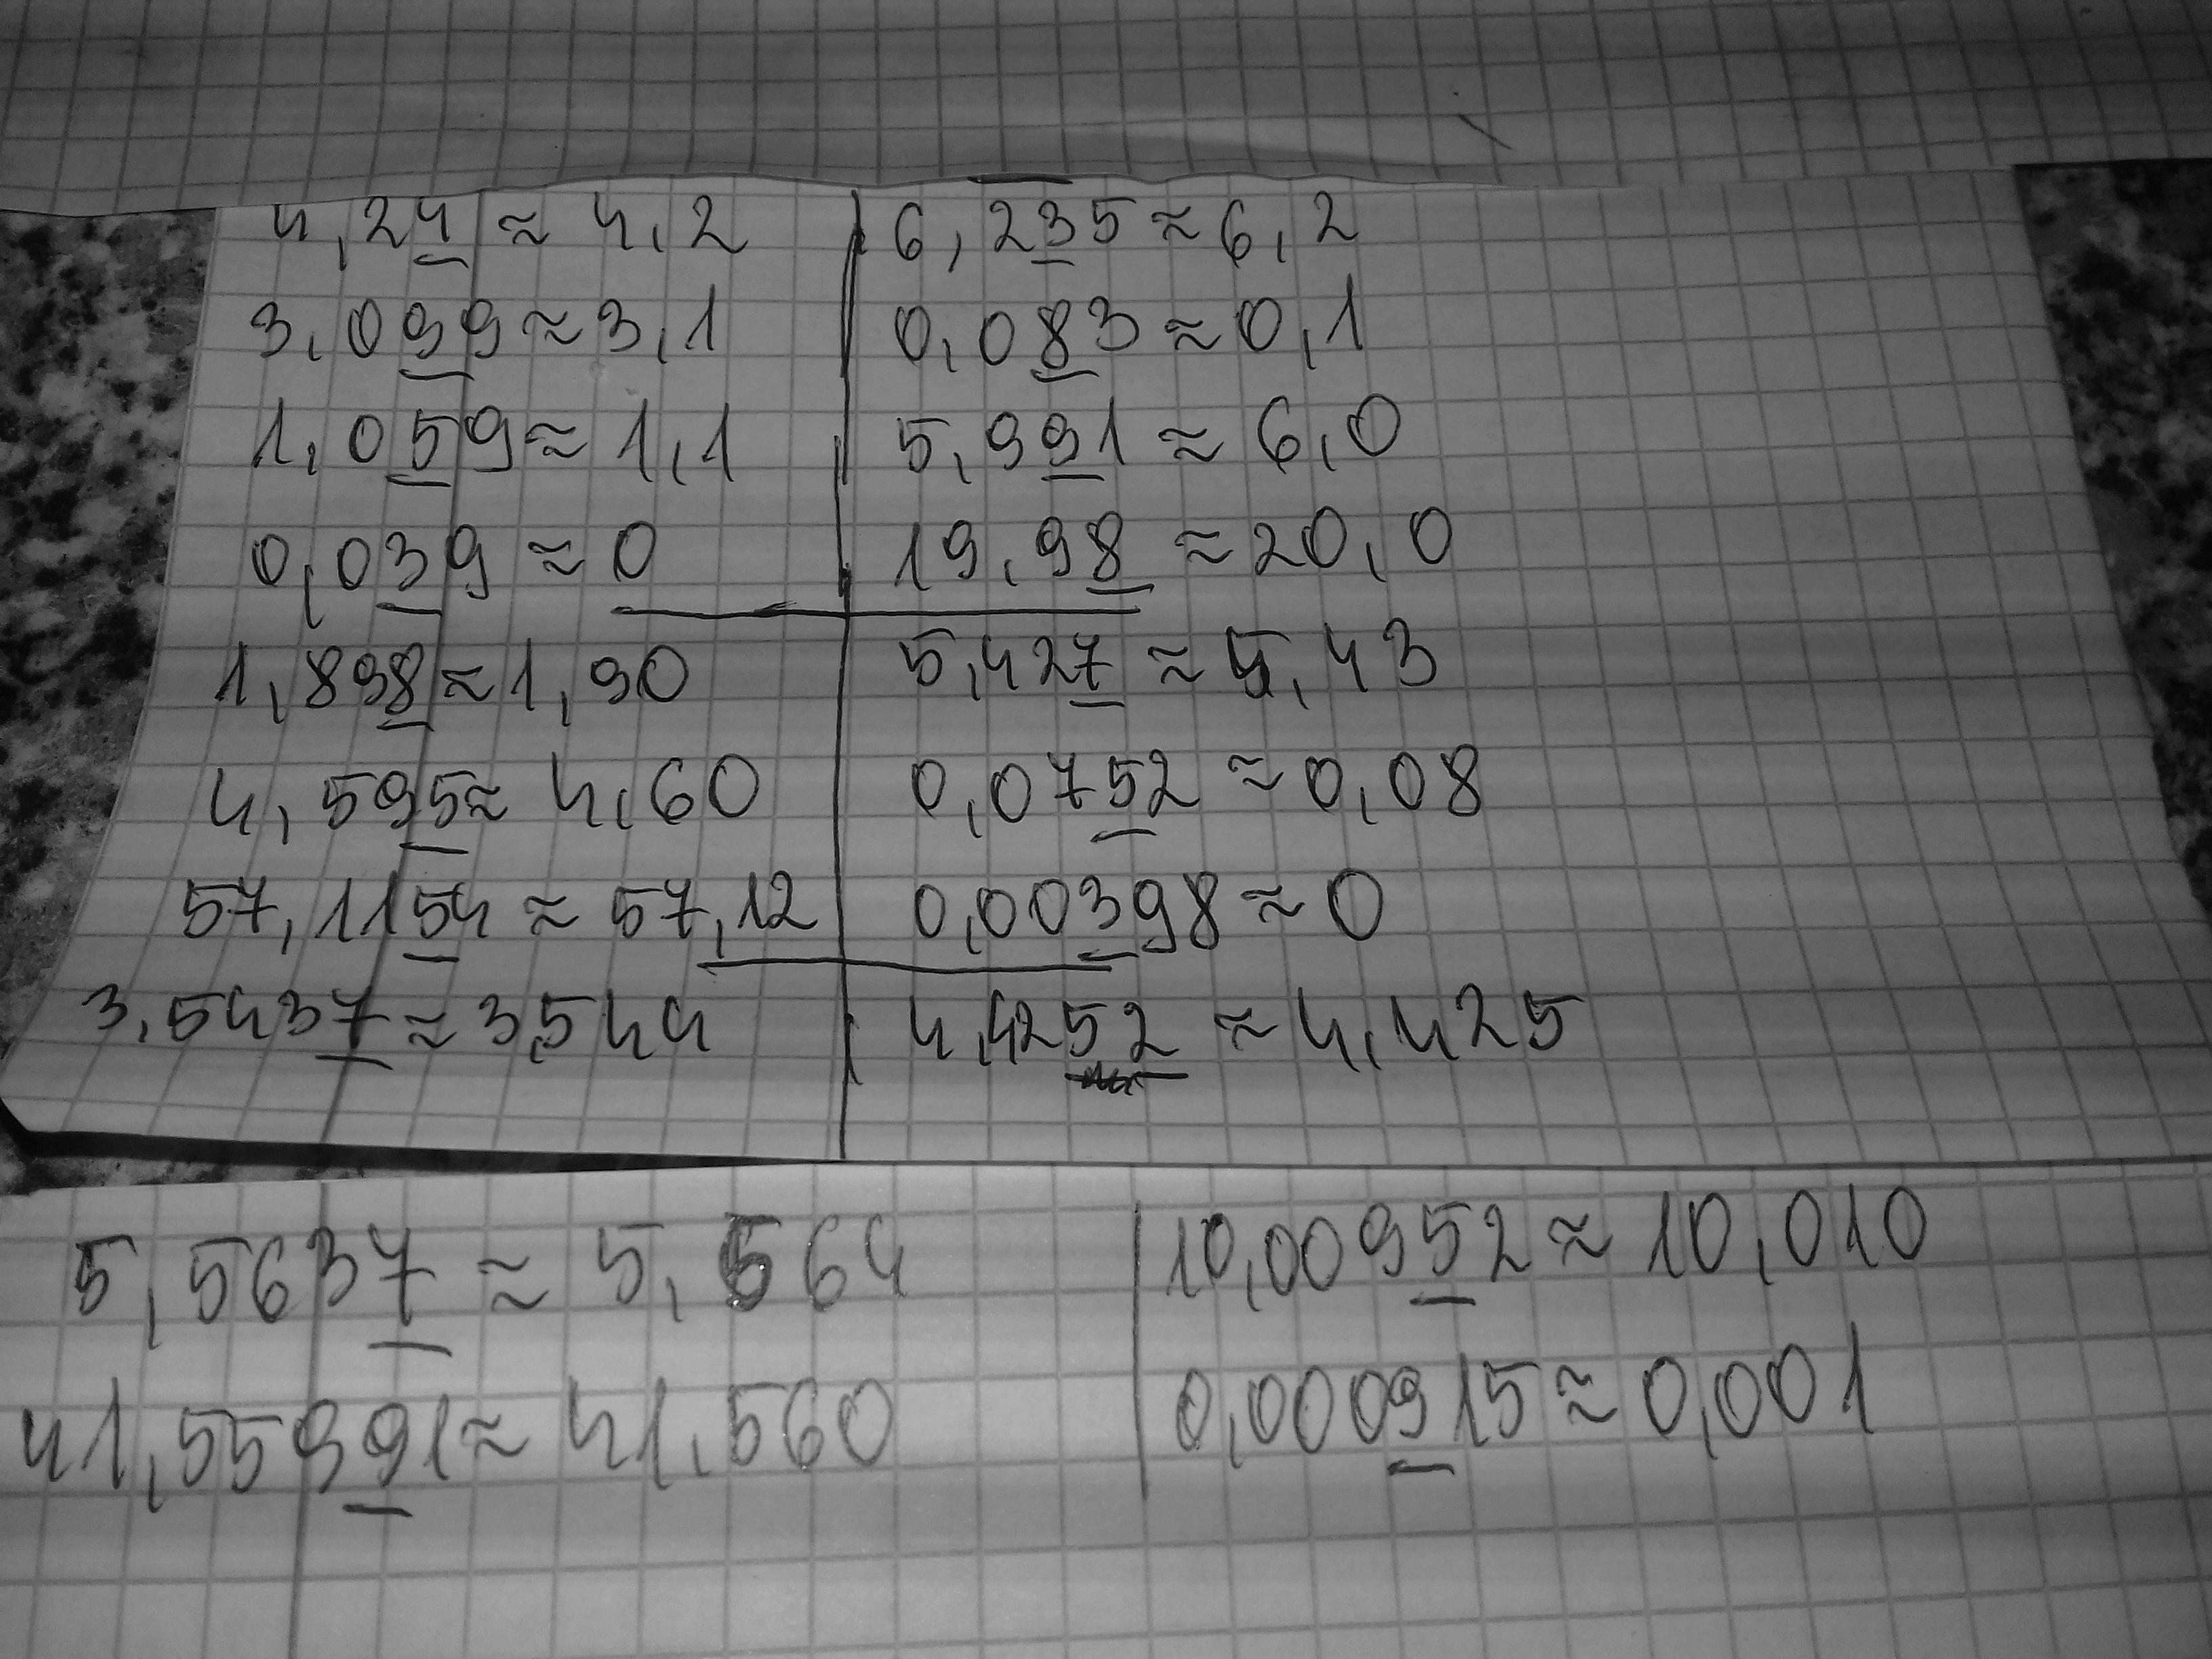 4,24 ≈ 4,2 | 6,235 ≈ 6,2
3,099 ≈ 3,1 | 0,083 ≈ 0,1
1,059 ≈ 1,1 | 5,991 ≈ 6,0
0,039 ≈ 0 | 19,98 ≈ 20,0
1,898 ≈ 1,90 | 5,427 ≈ 5,43
4,595 ≈ 4,60 | 0,0752 ≈ 0,08
57,1154 ≈ 57,12 | 0,00398 ≈ 0
3,5437 ≈ 3,544 | 4,4252 ≈ 4,425
5,5637 ≈ 5,564 | 10,00952 ≈ 10,010
41,55991 ≈ 41,560 | 0,000915 ≈ 0,001